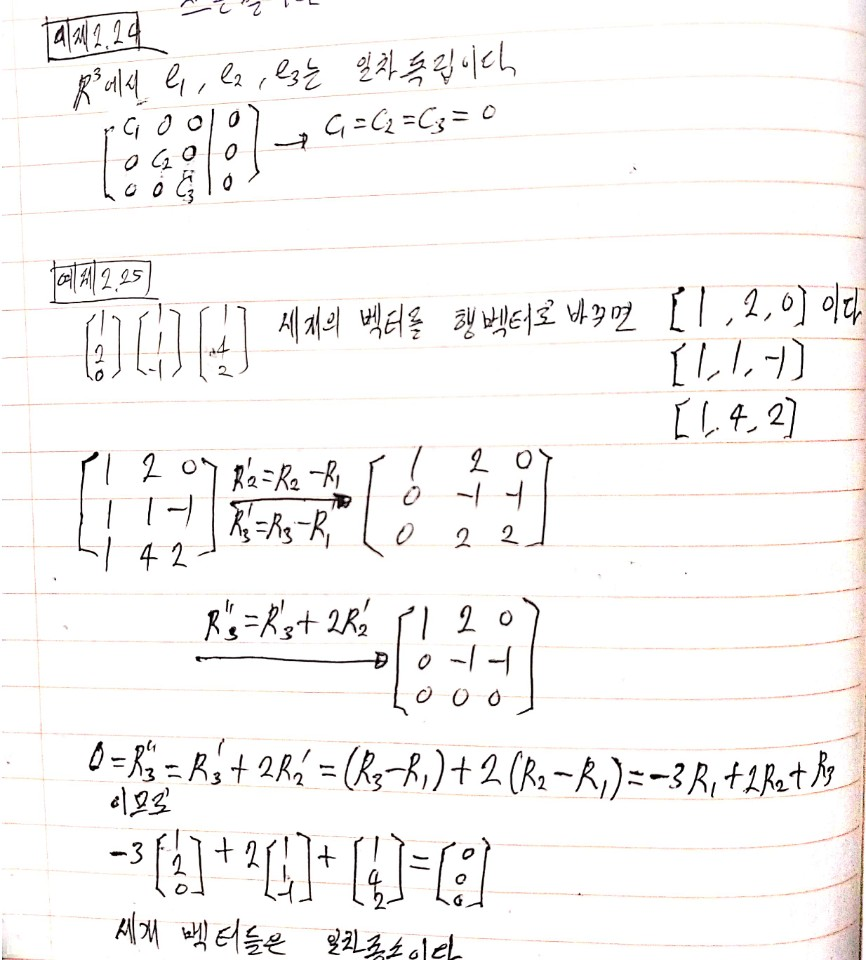 예제2.24
R³에서 e₁, e₂, e₃는 일차독립이다
[C₁ 0 0 | 0] → C₁=C₂=C₃=0
[0 C₂ 0 | 0]
[0 0 C₃ | 0]
예제2.25
[1 2 0] [1 1 -1] [1 4 2] 세개의 벡터를 행벡터로 바꾸면 [1, 2, 0] 이다
[1, 1, -1]
[1, 4, 2]
[1 2 0] R₂'=R₂-R₁ [1 2 0]
[1 1 -1] R₃'=R₃-R₁ [0 -1 -1]
[1 4 2] [0 2 2]
R₃''=R₃'+2R₂' [1 2 0]
[0 -1 -1]
[0 0 0]
0=R₃''=R₃'+2R₂'=(R₃-R₁)+2(R₂-R₁)=-3R₁+2R₂+R₃
이므로
-3[1 2 0]+2[1 1 -1]+[1 4 2]=[0 0 0]
세개 벡터들은 일차종속이다